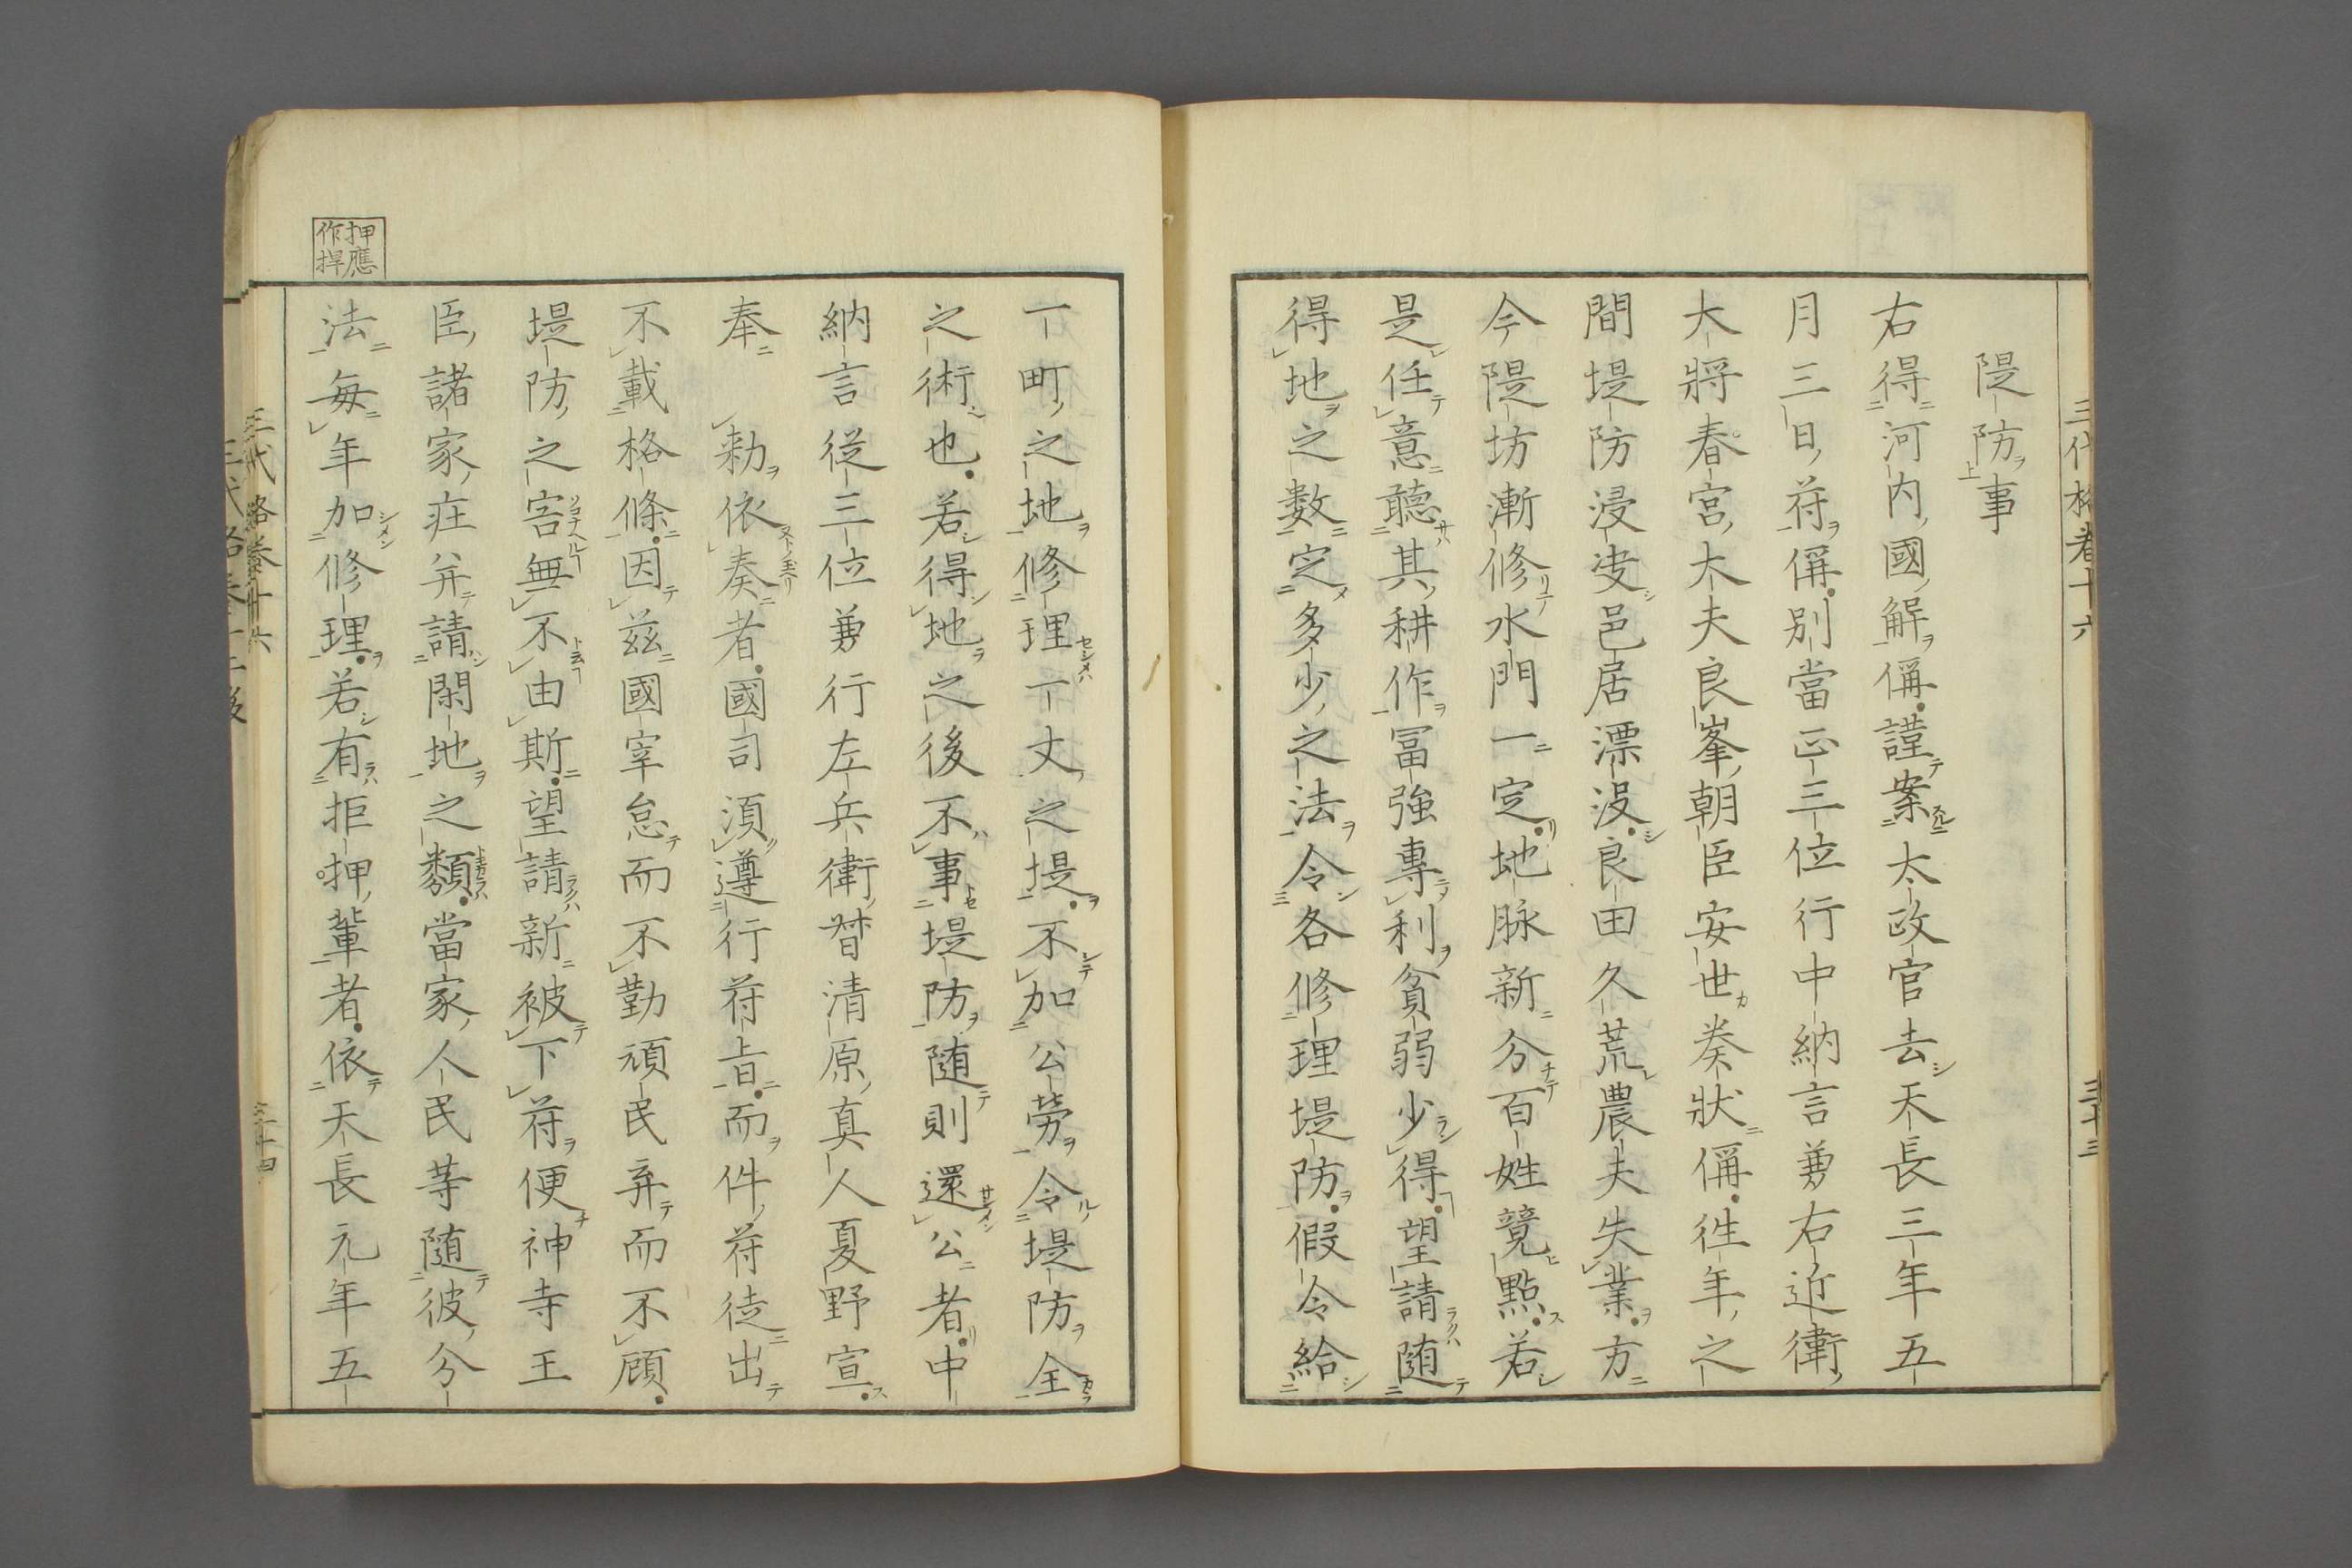 三代格卷十六
三十三
隄防事
右得河內國解偁謹案太政官去天長三年五
月三日符偁別當正三位行中納言兼右近衛
大將春宮大夫良峯朝臣安世奏狀偁徃年之
間堤防浸決邑居漂沒良田久荒農夫失業方
今隄坊漸修水門一定地脉新分百姓競點若
是任意聽其耕作冨強專利貧弱少得望請随
得地之数定多少之法令各修理堤防假令給
丁町之地修理丁丈之堤不加公勞令堤防全
之術也若得地之後不事堤防随則還公者中
納言從三位兼行左兵衛督清原真人夏野宣
奉勅依奏者國司須遵行符旨而件符徒出
不載格條因茲國宰怠而不勤頑民弃而不顧
堤防之害無不由斯望請新被下符便神寺王
臣諸家庄并請閑地之類當家人民等随彼分
法每年加修理若有拒押輩者依天長元年五
押應
作捍
三代格卷十六
三十四